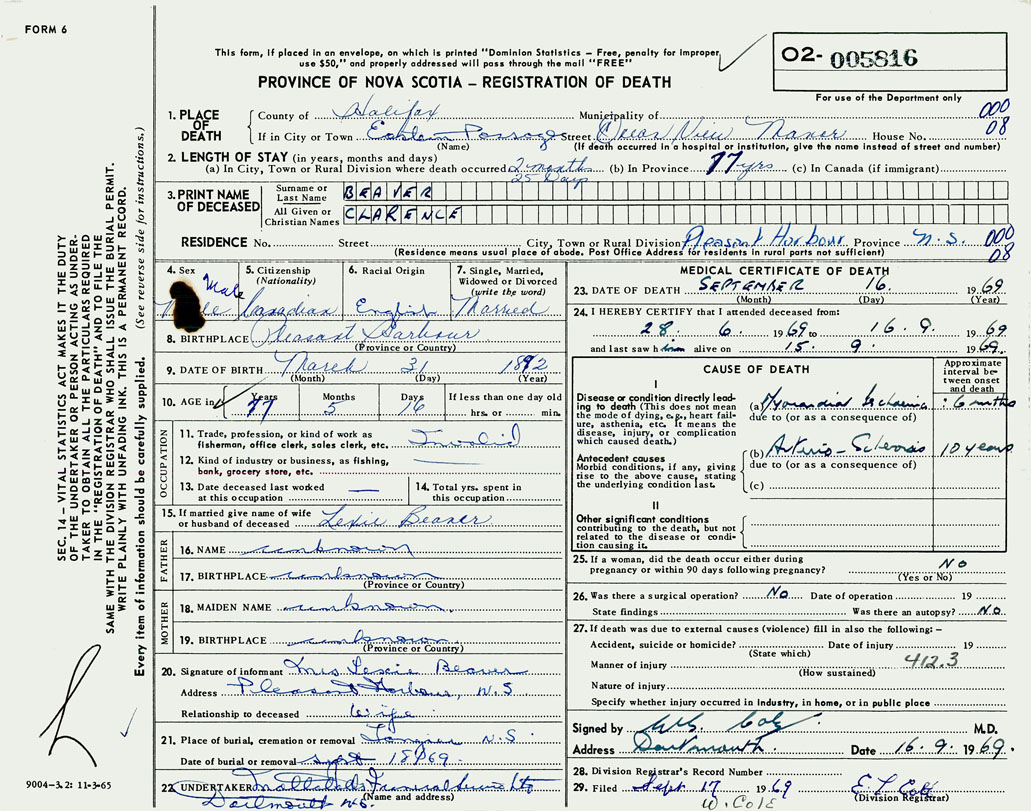 FORM 6
This form, if placed in an envelope, on which is printed "Dominion Statistics – Free, penalty for improper
use $50," and properly addressed will pass through the mail "FREE"
O2- 005816
For use of the Department only
PROVINCE OF NOVA SCOTIA – REGISTRATION OF DEATH
1. PLACE OF DEATH
County of Halifax Municipality of 000
If in City or Town Eastern Passage Street Ocean View Manor House No. 08
(Name) (If death occurred in a hospital or institution, give the name instead of street and number)
2. LENGTH OF STAY (in years, months and days)
(a) In City, Town or Rural Division where death occurred 2 months (b) In Province 77 yrs (c) In Canada (if immigrant)
25 Days
3. PRINT NAME OF DECEASED
Surname or Last Name BEAVER
All Given or Christian Names CLARENCE
RESIDENCE No. Street City, Town or Rural Division Pleasant Harbour Province N.S. 000
(Residence means usual place of abode. Post Office Address for residents in rural parts not sufficient) 08
4. Sex Male
Male
5. Citizenship (Nationality) Canadian
6. Racial Origin English
7. Single, Married, Widowed or Divorced (write the word) Married
8. BIRTHPLACE Pleasant Harbour
(Province or Country)
9. DATE OF BIRTH March 31 1892
(Month) (Day) (Year)
10. AGE in Years Months Days If less than one day old
77 5 16 hrs. or min.
OCCUPATION
11. Trade, profession, or kind of work as
fisherman, office clerk, sales clerk, etc. Invalid
12. Kind of industry or business, as fishing,
bank, grocery store, etc.
13. Date deceased last worked
at this occupation
14. Total yrs. spent in
this occupation
15. If married give name of wife
or husband of deceased Lexie Beaver
FATHER
16. NAME unknown
17. BIRTHPLACE unknown
(Province or Country)
MOTHER
18. MAIDEN NAME unknown
19. BIRTHPLACE unknown
(Province or Country)
20. Signature of informant Mrs Lexie Beaver
Address Pleasant Harbour, N.S
Relationship to deceased wife
21. Place of burial, cremation or removal N.S.
Date of burial or removal Sept 18 1969.
22. UNDERTAKER Funeral
Dartmouth N.S.
(Name and address)
MEDICAL CERTIFICATE OF DEATH
23. DATE OF DEATH SEPTEMBER 16. 1969
(Month) (Day) (Year)
24. I HEREBY CERTIFY that I attended deceased from:
28. 6. 1969 to 16. 9. 1969
and last saw him alive on 15. 9. 1969.
CAUSE OF DEATH
Approximate interval between onset and death
I
Disease or condition directly leading to death (This does not mean the mode of dying, e.g., heart failure, asthenia, etc. It means the disease, injury, or complication which caused death.)
(a) Myocardial Ischaemia 6 mths
due to (or as a consequence of)
Antecedent causes
Morbid conditions, if any, giving rise to the above cause, stating the underlying condition last.
(b) Arterio-Sclerosis 10 years
due to (or as a consequence of)
(c)
II
Other significant conditions
contributing to the death, but not related to the disease or condition causing it.
25. If a woman, did the death occur either during
pregnancy or within 90 days following pregnancy? No
(Yes or No)
26. Was there a surgical operation? No Date of operation 19
State findings Was there an autopsy? No
27. If death was due to external causes (violence) fill in also the following: –
Accident, suicide or homicide? Date of injury 19
(State which)
Manner of injury 412.3
(How sustained)
Nature of injury
Specify whether injury occurred in industry, in home, or in public place
Signed by M.D.
Address Dartmouth. Date 16.9. 1969.
28. Division Registrar's Record Number
29. Filed Sept 17 1969 E L Cole
(Division Registrar)
W. COLE
SEC. 14 – VITAL STATISTICS ACT MAKES IT THE DUTY
OF THE UNDERTAKER OR PERSON ACTING AS UNDER-
TAKER TO OBTAIN ALL THE PARTICULARS REQUIRED
IN THE "REGISTRATION OF DEATH" AND TO FILE THE
SAME WITH THE DIVISION REGISTRAR WHO SHALL ISSUE THE BURIAL PERMIT.
WRITE PLAINLY WITH UNFADING INK. THIS IS A PERMANENT RECORD.
Every item of information should be carefully supplied. (See reverse side for instructions.)
9004-3,2: 11-3-65